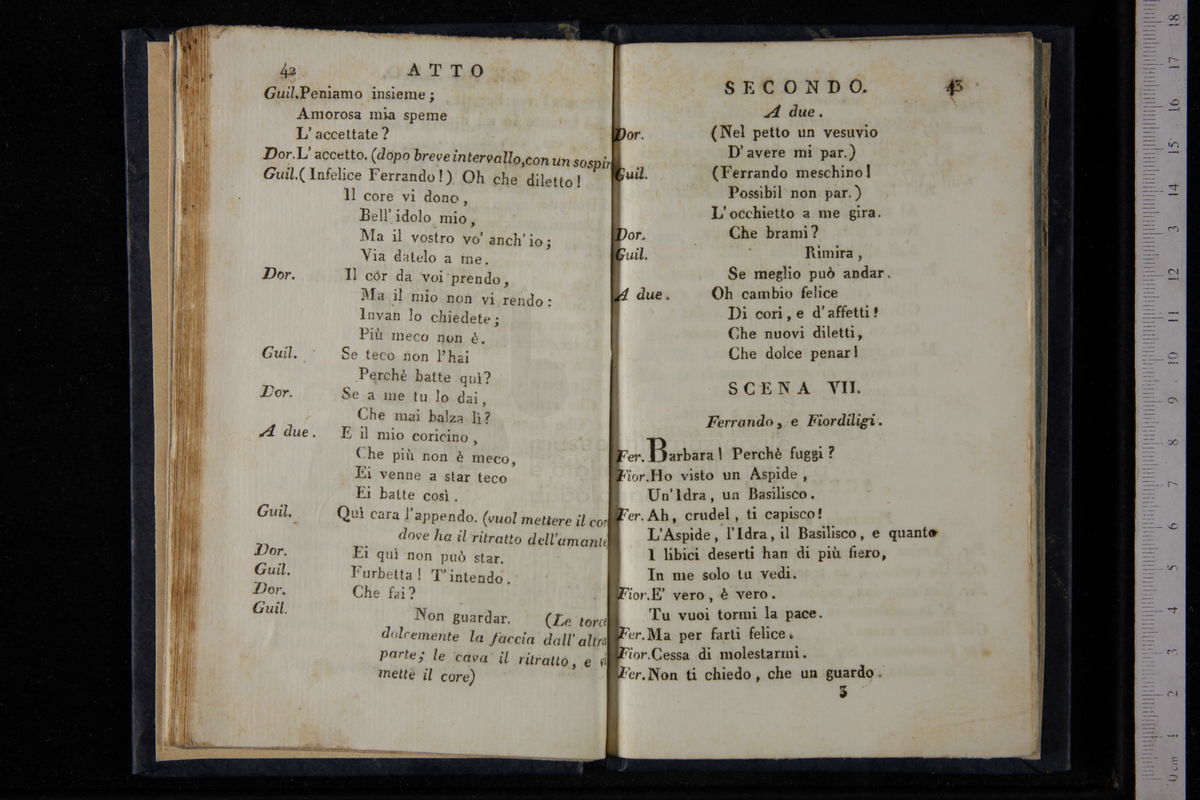 42 ATTO
Guil.Peniamo insieme;
Amorosa mia speme
L' accettate?
Dor.L' accetto. (dopo breve intervallo,con un sospir
Guil.(Infelice Ferrando!) Oh che diletto!
Il core vi dono,
Bell' idolo mio,
Ma il vostro vo' anch' io;
Via datelo a me.
Dor. Il côr da voi prendo,
Ma il mio non vi rendo:
Invan lo chiedete;
Più meco non è.
Guil. Se teco non l'hai
Perchè batte quì?
Dor. Se a me tu lo dai,
Che mai balza lì?
A due. E il mio coricino,
Che più non è meco,
Ei venne a star teco
Ei batte così.
Guil. Quì cara l'appendo. (vuol mettere il cor
dove ha il ritratto dell'amante
Dor. Ei quì non può star.
Guil. Furbetta! T' intendo.
Dor. Che fai?
Guil. Non guardar. (Le torce
dolcemente la faccia dall' altra
parte; le cava il ritratto, e vi
mette il core)
SECONDO. 43
A due.
Dor. (Nel petto un vesuvio
D' avere mi par.)
Guil. (Ferrando meschino!
Possibil non par.)
L' occhietto a me gira.
Dor. Che brami?
Guil. Rimira,
Se meglio può andar.
A due. Oh cambio felice
Di cori, e d' affetti!
Che nuovi diletti,
Che dolce penar!
SCENA VII.
Ferrando, e Fiordiligi.
Fer. Barbara! Perchè fuggi?
Fior.Ho visto un Aspide,
Un'Idra, un Basilisco.
Fer. Ah, crudel, ti capisco!
L'Aspide, l'Idra, il Basilisco, e quanto
I libici deserti han di più fiero,
In me solo tu vedi.
Fior.E' vero, è vero.
Tu vuoi tormi la pace.
Fer.Ma per farti felice.
Fior.Cessa di molestarmi.
Fer.Non ti chiedo, che un guardo.
3
0 cm 1 2 3 4 5 6 7 8 9 10 11 12 13 14 15 16 17 18